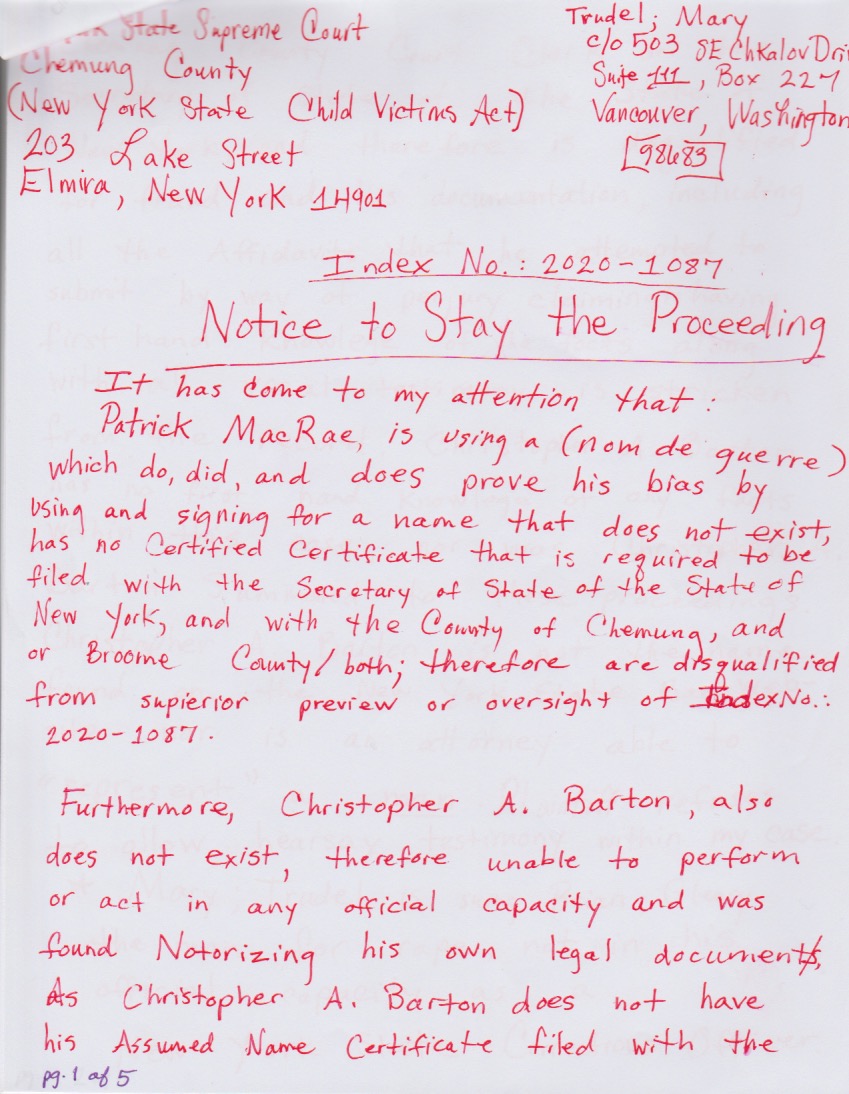 State Supreme Court
Chemung County
(New York State Child Victims Act)
203 Lake Street
Elmira, New York 14901
Trudel; Mary
c/o 503 SE Chkalov Dri
Suite 111, Box 227
Vancouver, Washington
98683
Index No.: 2020-1087
Notice to Stay the Proceeding
It has come to my attention that:
Patrick MacRae, is using a (nom de guerre)
which do, did, and does prove his bias by
using and signing for a name that does not exist,
has no Certified Certificate that is required to be
filed with the Secretary of State of the State of
New York, and with the County of Chemung, and
or Broome County/both; therefore are disqualified
from supierior preview or oversight of IndexNo.:
2020-1087.
Furthermore, Christopher A. Barton, also
does not exist, therefore unable to perform
or act in any official capacity and was
found Notorizing his own legal documents,
As Christopher A. Barton does not have
his Assumed Name Certificate filed with the
pg. 1 of 5